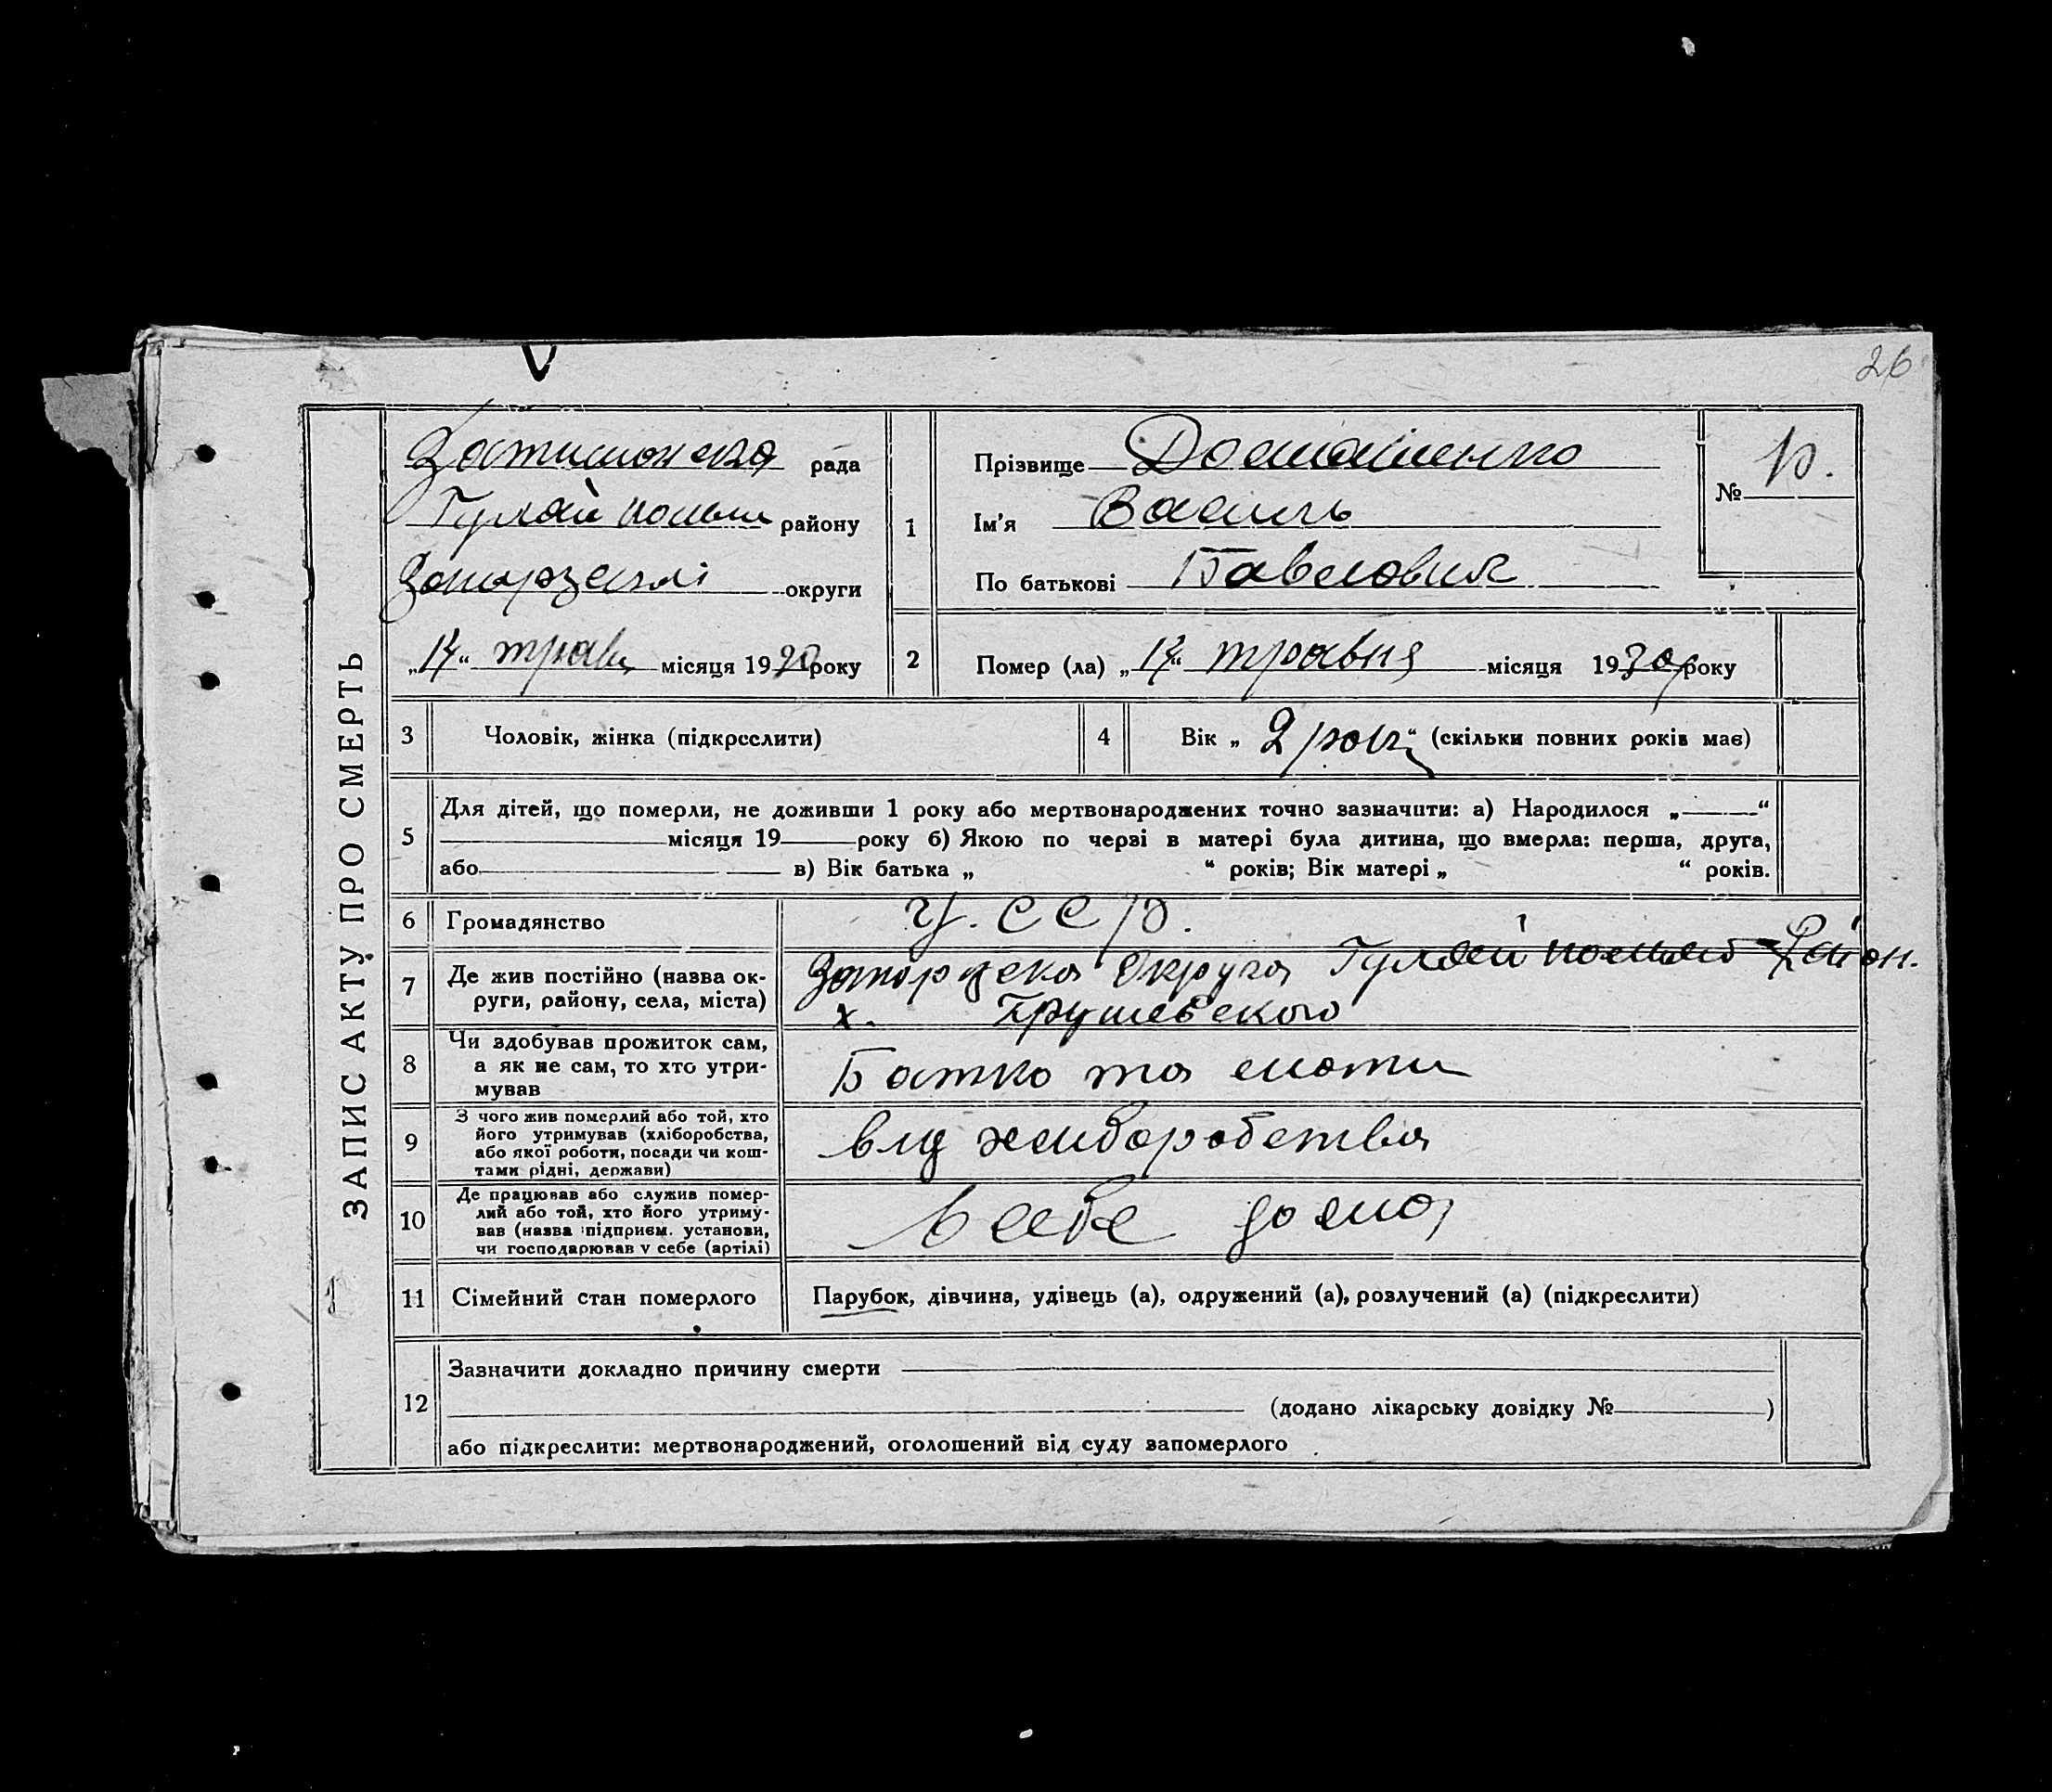 26
ЗАПИС АКТУ ПРО СМЕРТЬ
рада
Гуляй району
округи
„17“ трав місяця 1930 року
1
Прізвище Домашенко
Ім'я Василь
По батькові Бавлович
№
2
Помер (ла) „17“ травня місяця 1930 року
3 Чоловік, жінка (підкреслити)
4 Вік „2 роки“ (скільки повних років має)
5 Для дітей, що померли, не доживши 1 року або мертвонароджених точно зазначити: а) Народилося „——“
місяця 19 року б) Якою по черзі в матері була дитина, що вмерла: перша, друга,
або в) Вік батька „ “ років; Вік матері „ “ років.
6 Громадянство У.ССР.
7 Де жив постійно (назва ок-
руги, району, села, міста)
Запорізека Округа Гуляй Район.
х. Грушевского
8 Чи здобував прожиток сам,
а як не сам, то хто утри-
мував
Батко та мати
9 З чого жив померлий або той, хто
його утримував (хліборобства,
або якої роботи, посади чи кош-
тами рідні, держави)
від хлиборобства
10 Де працював або служив помер-
лий або той, хто його утриму-
вав (назва підприєм. установи,
чи господарював у себе (артілі)
в себе дома
11 Сімейний стан померлого
Парубок, дівчина, удівець (а), одружений (а), розлучений (а) (підкреслити)
12 Зазначити докладно причину смерти
(додано лікарську довідку № )
або підкреслити: мертвонароджений, оголошений від суду запомерлого